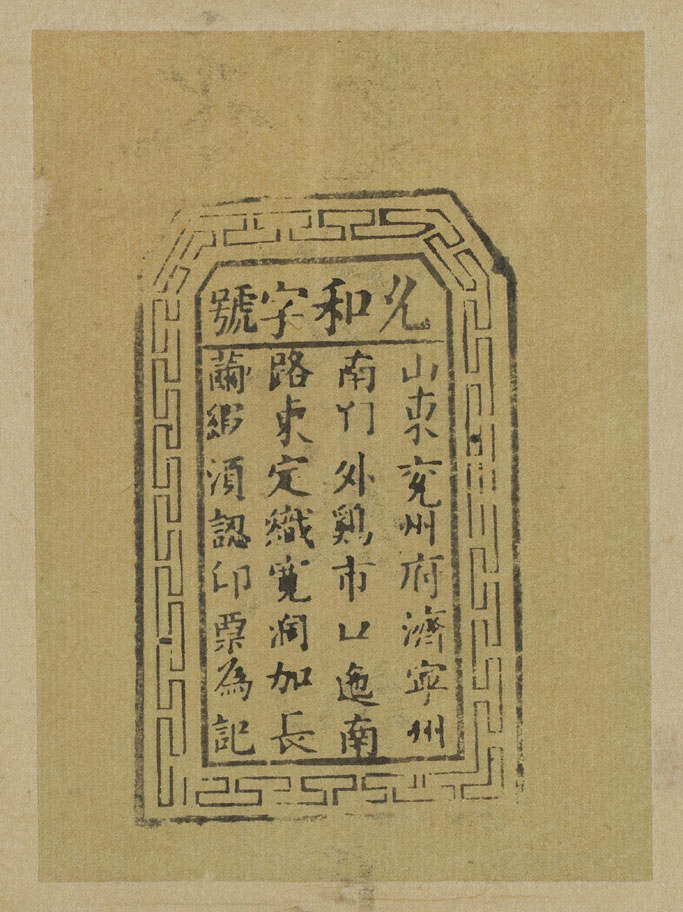 和字號
山東兖州府濟寧州
南门外鷄市口迤南
路東定織寬濶加長
繭綢須認印票為記